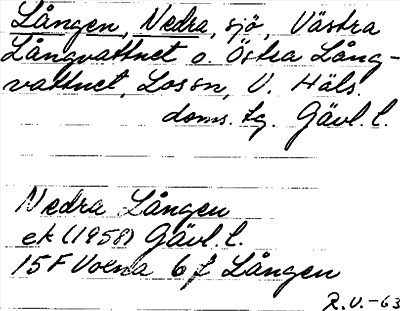 Lången, Nedra, sjö, Västra
Långvattnet o. Östra Lång-
vattnet, Lossn, V. Häls.
doms. tg. Gävl. l.
Nedra Lången
ek (1958) Gävl. l.
15F Voxna 6 f Lången
R.V. -63